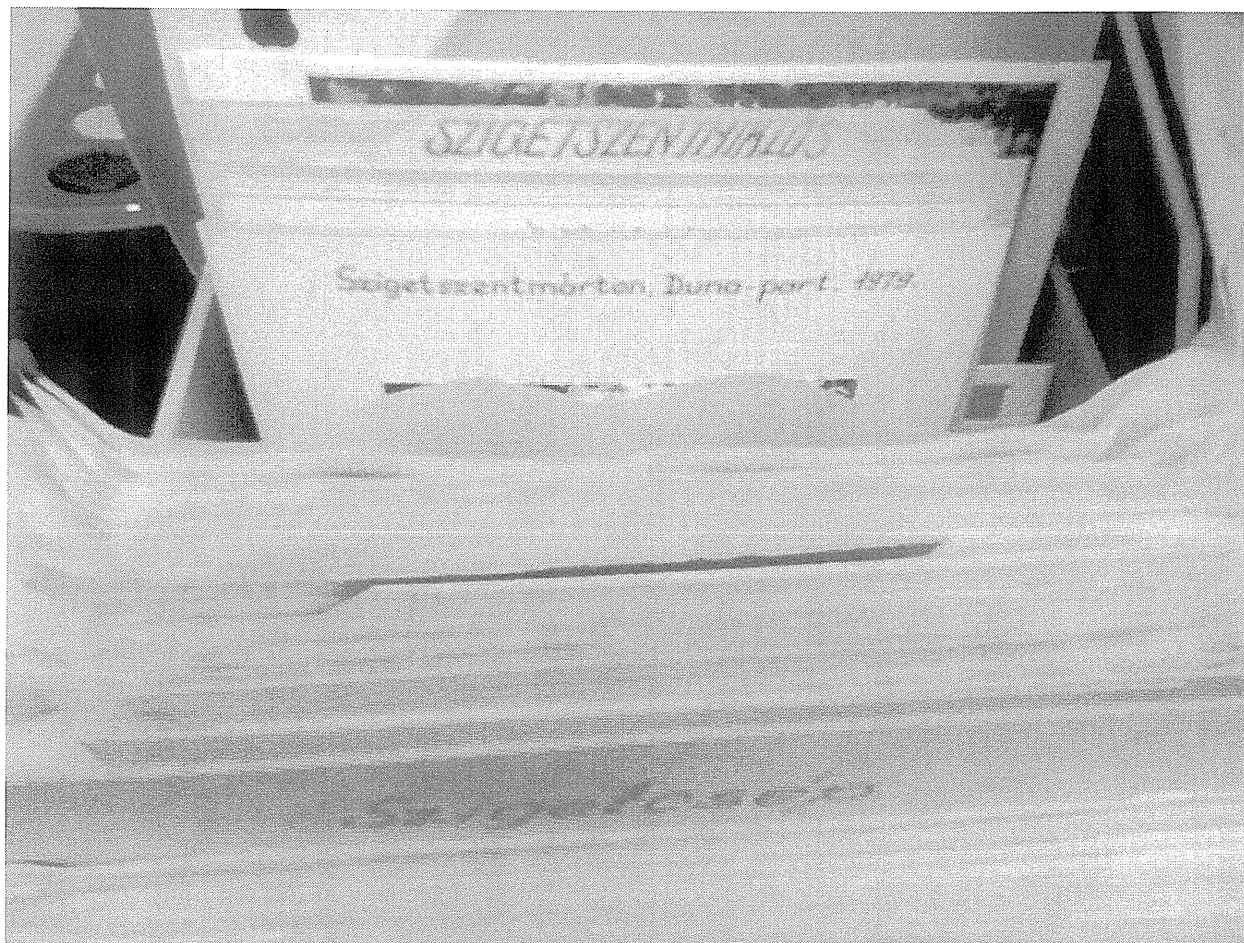 SZIGETSZENTMIKLÓS
Szigetszentmárton, Duna-part, 1979.
Szigetcsép